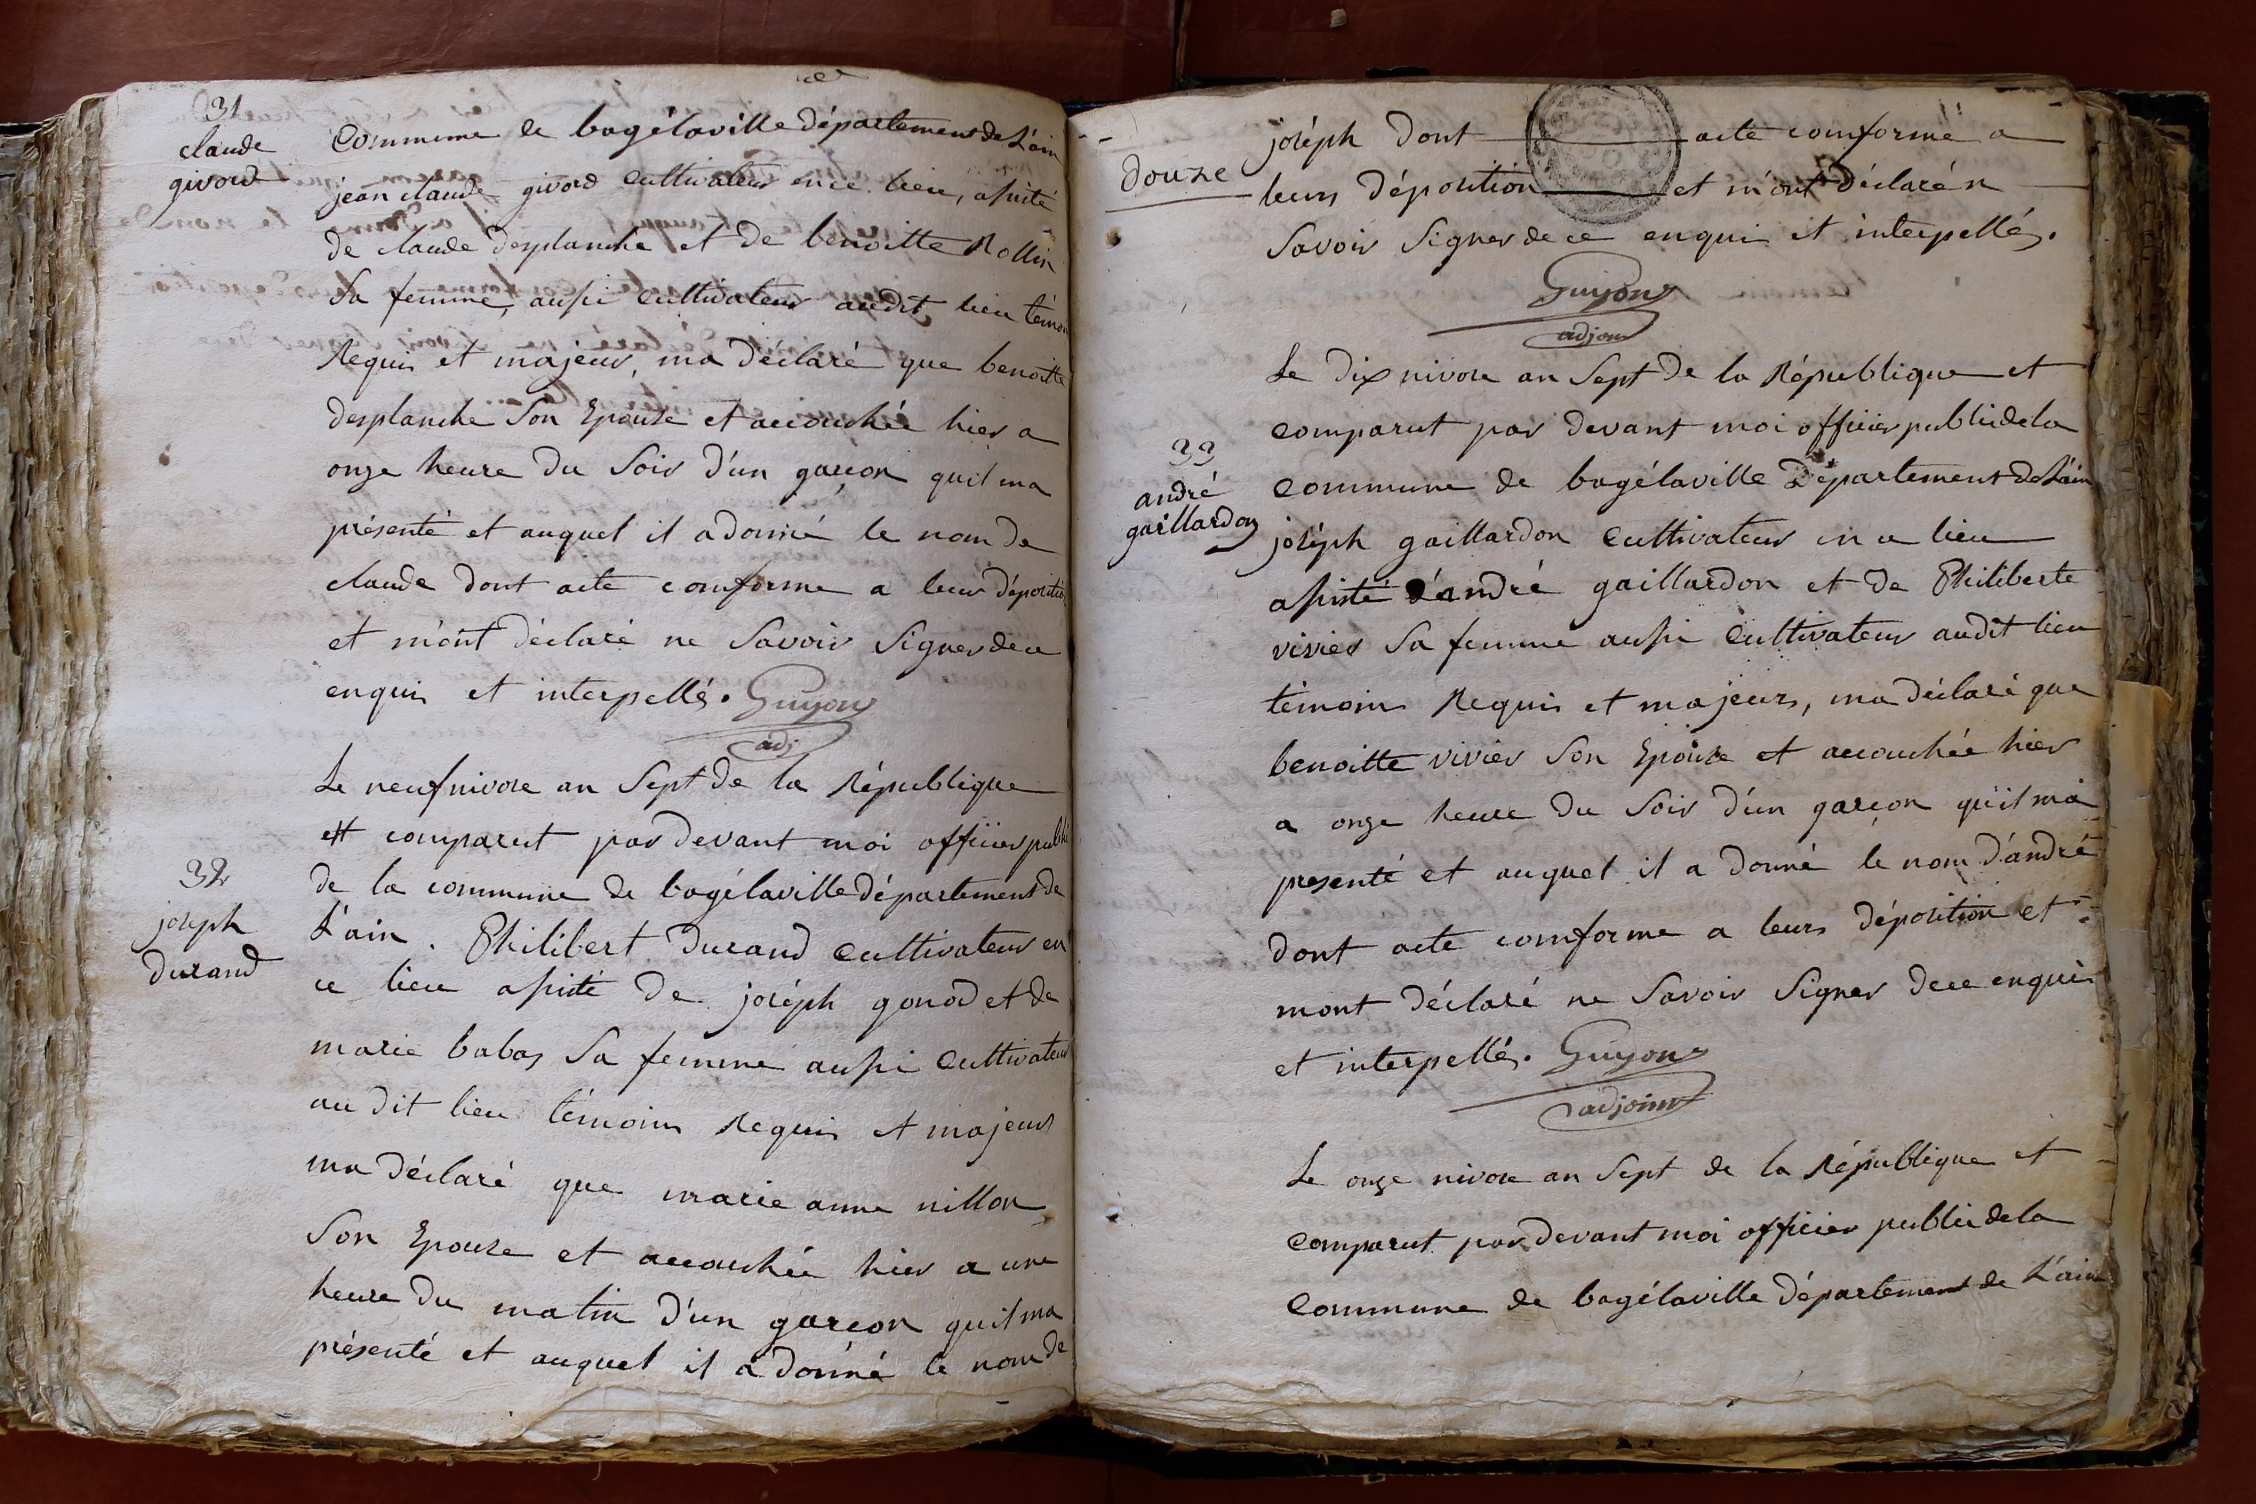 31
claude
givord
Commune de bagélaville département de L'ain
jean claude givord Cultivateur en ce lieu, assisté
de claude desplanche et de benoitte Rollin
Sa femme, aussi Cultivateur audit lieu témoin
Requis et majeur, ma déclaré que benoitte
desplanche Son Epouse et accouchée hier a
onze heure du Soir d'un garçon quil ma
présenté et auquel il a donné le nom de
claude dont acte comforme a leur déposition
et m'ont déclaré ne Savoir Signer de ce
enquis et interpellés. Guyon
adj
Le neuf nivose an Sept de la République
et comparut par devant moi officier public
32
joseph
durand
de la commune de bagélaville département de
L'ain. Philibert Durand Cultivateur en
ce lieu assisté de joséph gonod et de
marie babas Sa femme aussi Cultivateur
au dit lieu témoins Requis et majeur
ma déclaré que marie anne nillon
Son Epouse et accouchée hier a une
heure du matin d'un garçon quil ma
présenté et auquel il a donné le nom de
douze
joséph dont acte comforme a
leurs déposition et m'ont déclaré n
Savoir Signer de ce enquis et interpellés.
Guyon
adjoint
Le dix nivose an Sept de la République et
comparut par devant moi officier public de la
33
andré
gaillardon
Commune de bagélaville Département de L'ain
joséph gaillardon Cultivateur en ce lieu
assisté d'andré gaillardon et de Philiberte
vivier Sa femme aussi Cultivateur audit lieu
témoins Requis et majeurs, ma déclaré que
benoitte vivier Son Epouse et accouchée hier
a onze heure du Soir d'un garçon qu'il ma
presenté et auquel il a donné le nom d'andré
dont acte comforme a leurs déposition et
mont déclaré ne Savoir Signer de ce enquis
et interpellés. Guyon
adjoint
Le onze nivose an Sept de la République et
Comparut par devant moi officier public de la
Commune de bagélaville département de L'ain